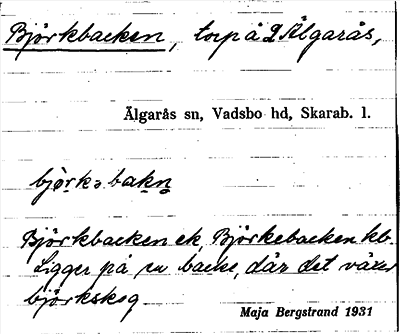 Björkbacken, torp å 2 Älgarås,
Älgarås sn, Vadsbo hd, Skarab. l.
björkɔbakn̥
Björkbacken ek, Björkebacken kb.
Ligger på en backe, där det växer
björkskog
Maja Bergstrand 1931